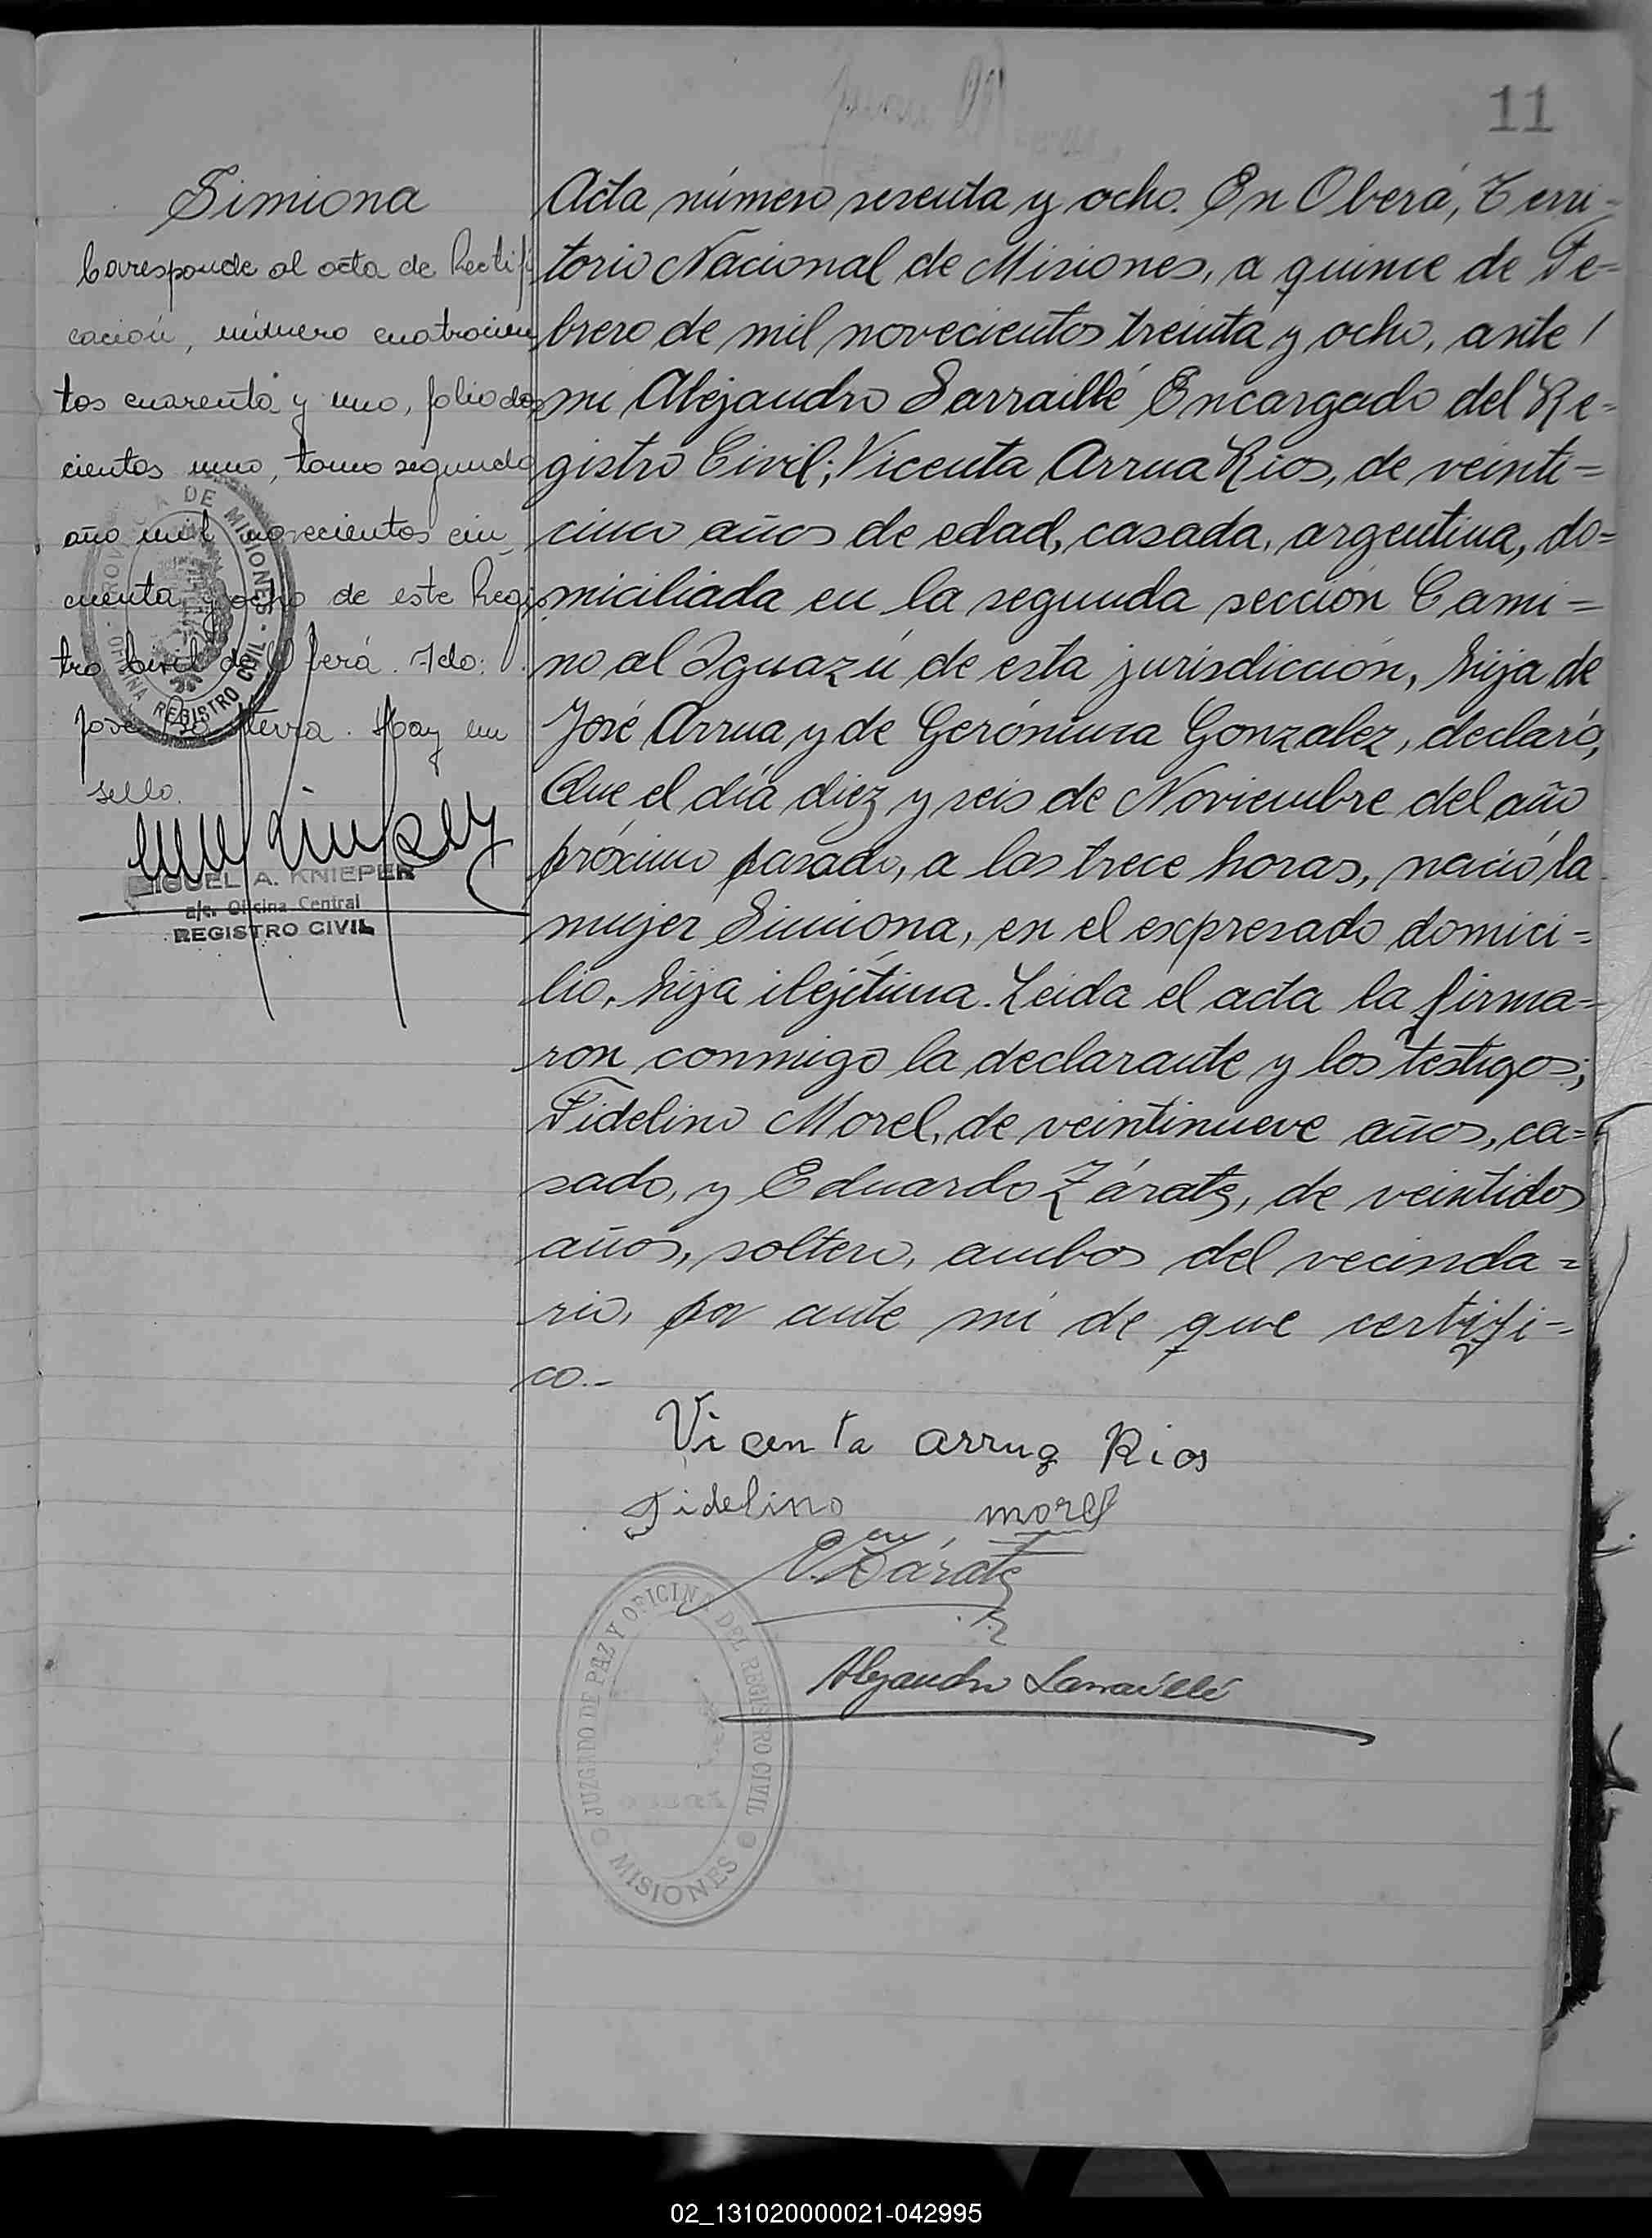 11
Simiona
Corresponde al acta de Rectifi
cación, número cuatrocien
tos cuarenta y uno, folio dos
cientos uno, tomo segundo
año mil novecientos cin
cuenta y ocho de este Regis
tro Civil de Oberá. Fdo:
José
Hay un
sello.
PROVINCIA DE MISIONES
OFICINA REGISTRO CIVIL
MIGUEL A. KNIEPER
a/c. Oficina Central
REGISTRO CIVIL
Acta número sesenta y ocho. En Oberá, Terri-
torio Nacional de Misiones, a quince de Fe=
brero de mil novecientos treinta y ocho, ante
mi Alejandro Sarraillé Encargado del Re=
gistro Civil; Vicenta Arrua Rios, de veinti=
cinco años de edad, casada, argentina, do=
miciliada en la segunda sección Cami=
no al Iguazú de esta jurisdicción, hija de
José Arrua y de Gerónima Gonzalez, declaró,
Que el día diez y seis de Noviembre del año
próximo pasado, a las trece horas, nació la
mujer Simiona, en el expresado domici=
lio, hija ilejítima. Leida el acta la firma=
ron conmigo la declarante y los testigos;
Fidelino Morel, de veintinueve años, ca=
sado, y Eduardo Zárate, de veintidos
años, soltero, ambos del vecinda=
rio, por ante mi de que certifi=
co.-
Vicenta arrua Rios
Fidelino morel
E. Zárate
Alejandro Sarraillé
JUZGADO DE PAZ Y OFICINA DEL REGISTRO CIVIL
MISIONES
02_131020000021-042995